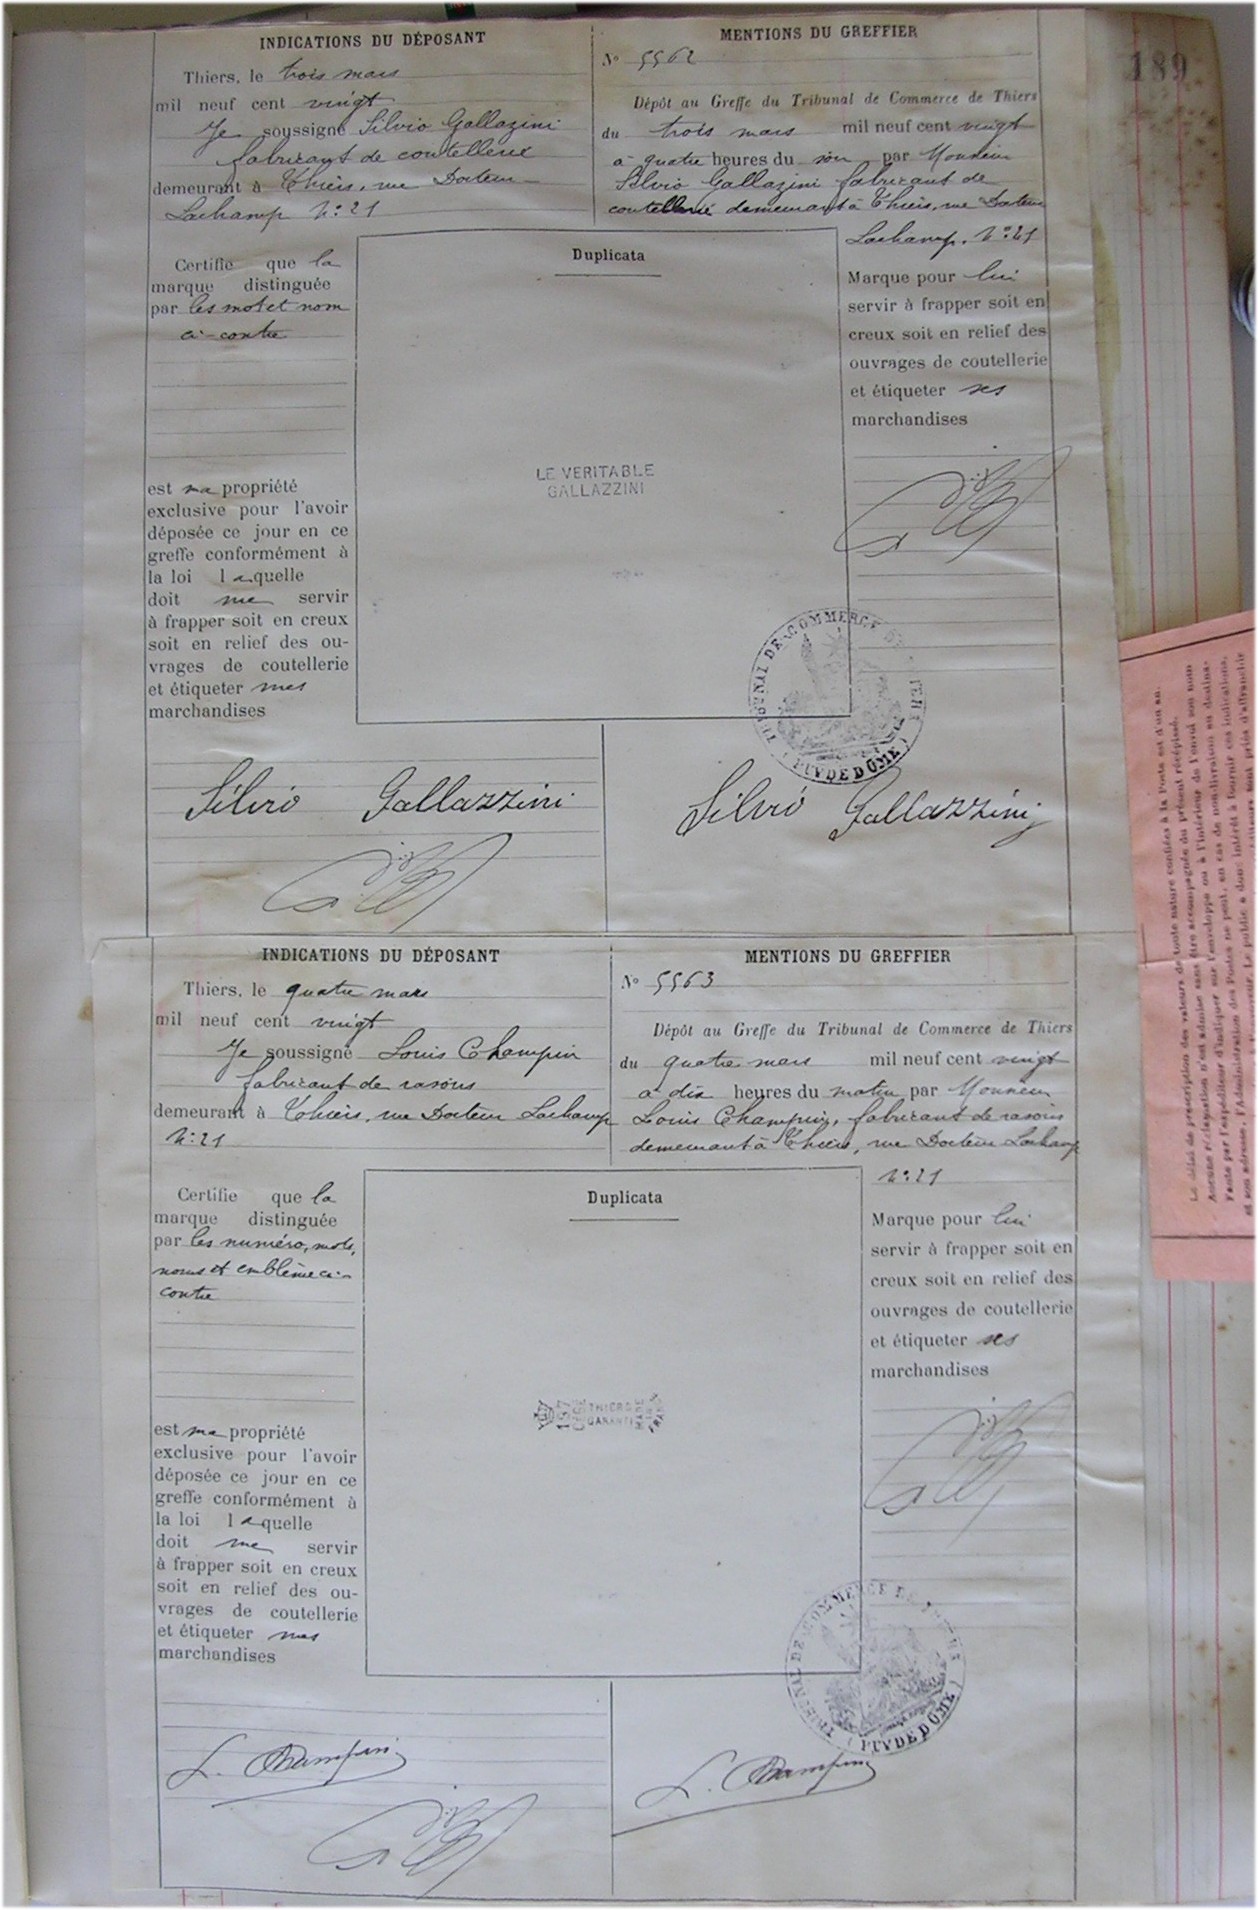 189
INDICATIONS DU DÉPOSANT
Thiers, le trois mars
mil neuf cent vingt
Je soussigné Silvio Gallazini
fabricant de coutellerie
demeurant à Thiers, rue Docteur
Lachamp N: 21
MENTIONS DU GREFFIER
No 5562
Dépôt au Greffe du Tribunal de Commerce de Thiers
du trois mars mil neuf cent vingt
à quatre heures du soir par Monsieur
Silvio Gallazini fabricant de
coutellerie demeurant à Thiers, rue Docteur
Lachamp, N: 21
Certifie que la
marque distinguée
par les mot et nom
ci-contre
est ma propriété
exclusive pour l'avoir
déposée ce jour en ce
greffe conformément à
la loi laquelle
doit me servir
à frapper soit en creux
soit en relief des ou-
vrages de coutellerie
et étiqueter mes
marchandises
Duplicata
LE VERITABLE
GALLAZZINI
Marque pour lui
servir à frapper soit en
creux soit en relief des
ouvrages de coutellerie
et étiqueter ses
marchandises
TRIBUNAL DE COMMERCE DE THIERS
(PUY DE DOME)
Silvio Gallazzini
Silvio Gallazzini
INDICATIONS DU DÉPOSANT
Thiers, le quatre mars
mil neuf cent vingt
Je soussigné Louis Champrin
fabricant de rasoirs
demeurant à Thiers, rue Docteur Lachamp
N: 21
MENTIONS DU GREFFIER
No 5563
Dépôt au Greffe du Tribunal de Commerce de Thiers
du quatre mars mil neuf cent vingt
à dix heures du matin par Monsieur
Louis Champrin, fabricant de rasoirs
demeurant à Thiers, rue Docteur Lachamp
N: 21
Certifie que la
marque distinguée
par les numéro, mots,
noms et emblème ci-
contre
est ma propriété
exclusive pour l'avoir
déposée ce jour en ce
greffe conformément à
la loi laquelle
doit me servir
à frapper soit en creux
soit en relief des ou-
vrages de coutellerie
et étiqueter mes
marchandises
Duplicata
197
THIERS
GARANTI
MADE
FRANCE
Marque pour lui
servir à frapper soit en
creux soit en relief des
ouvrages de coutellerie
et étiqueter ses
marchandises
TRIBUNAL DE COMMERCE DE THIERS
(PUY DE DOME)
L. Champrin
L. Champrin
Le délai de prescription des valeurs de toute nature confiées à la Poste est d'un an.
Aucune réclamation n'est admise sans être accompagnée du présent récépissé.
Faute par l'expéditeur d'indiquer sur l'enveloppe ou à l'intérieur de l'envoi son nom
et son adresse, l'Administration des Postes ne peut, en cas de non-livraison au destina-